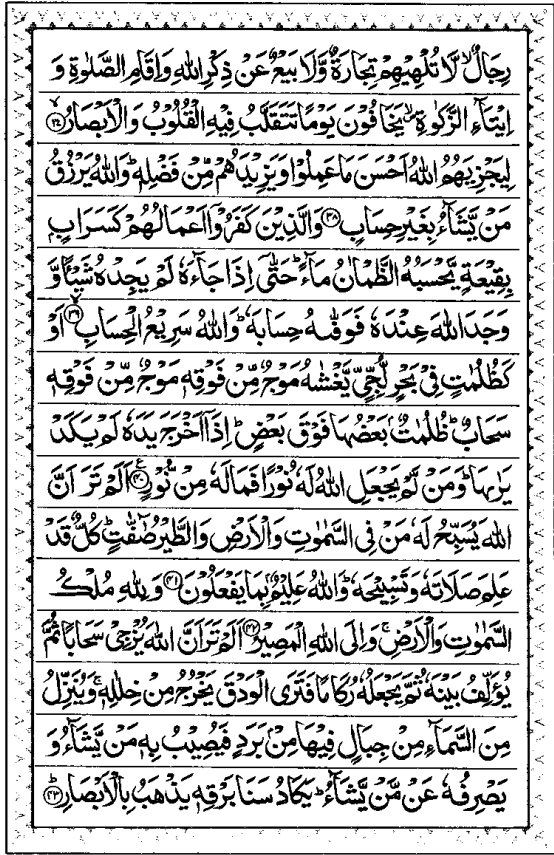 رِجَالٌ ۙ لَّا تُلْهِيْهِمْ تِجَارَةٌ وَّلَا بَيْعٌ عَنْ ذِكْرِ اللّٰهِ وَاِقَامِ الصَّلٰوةِ وَ
اِيْتَآءِ الزَّكٰوةِ ۙ يَخَافُوْنَ يَوْمًا تَتَقَلَّبُ فِيْهِ الْقُلُوْبُ وَالْاَبْصَارُ ۙ ﴿۳۷﴾
لِيَجْزِيَهُمُ اللّٰهُ اَحْسَنَ مَا عَمِلُوْا وَيَزِيْدَهُمْ مِّنْ فَضْلِهٖ ؕ وَاللّٰهُ يَرْزُقُ
مَنْ يَّشَآءُ بِغَيْرِ حِسَابٍ ﴿۳۸﴾ وَالَّذِيْنَ كَفَرُوْۤا اَعْمَالُهُمْ كَسَرَابٍۭ
بِقِيْعَةٍ يَّحْسَبُهُ الظَّمْاٰنُ مَآءً ؕ حَتّٰۤى اِذَا جَآءَهٗ لَمْ يَجِدْهُ شَيْـًٔا وَّ
وَجَدَ اللّٰهَ عِنْدَهٗ فَوَفّٰىهُ حِسَابَهٗ ؕ وَاللّٰهُ سَرِيْعُ الْحِسَابِ ۙ ﴿۳۹﴾ اَوْ
كَظُلُمٰتٍ فِيْ بَحْرٍ لُّجِّيٍّ يَّغْشٰىهُ مَوْجٌ مِّنْ فَوْقِهٖ مَوْجٌ مِّنْ فَوْقِهٖ
سَحَابٌ ؕ ظُلُمٰتٌۢ بَعْضُهَا فَوْقَ بَعْضٍ ؕ اِذَاۤ اَخْرَجَ يَدَهٗ لَمْ يَكَدْ
يَرٰىهَا ؕ وَمَنْ لَّمْ يَجْعَلِ اللّٰهُ لَهٗ نُوْرًا فَمَا لَهٗ مِنْ نُّوْرٍ ﴿۴۰﴾ اَلَمْ تَرَ اَنَّ
اللّٰهَ يُسَبِّحُ لَهٗ مَنْ فِي السَّمٰوٰتِ وَالْاَرْضِ وَالطَّيْرُ صٰٓفّٰتٍ ؕ كُلٌّ قَدْ
عَلِمَ صَلَاتَهٗ وَتَسْبِيْحَهٗ ؕ وَاللّٰهُ عَلِيْمٌۢ بِمَا يَفْعَلُوْنَ ﴿۴۱﴾ وَلِلّٰهِ مُلْكُ
السَّمٰوٰتِ وَالْاَرْضِ ۚ وَاِلَى اللّٰهِ الْمَصِيْرُ ﴿۴۲﴾ اَلَمْ تَرَ اَنَّ اللّٰهَ يُزْجِيْ سَحَابًا ثُمَّ
يُؤَلِّفُ بَيْنَهٗ ثُمَّ يَجْعَلُهٗ رُكَامًا فَتَرَى الْوَدْقَ يَخْرُجُ مِنْ خِلٰلِهٖ ۚ وَيُنَزِّلُ
مِنَ السَّمَآءِ مِنْ جِبَالٍ فِيْهَا مِنْۢ بَرَدٍ فَيُصِيْبُ بِهٖ مَنْ يَّشَآءُ وَ
يَصْرِفُهٗ عَنْ مَّنْ يَّشَآءُ ؕ يَكَادُ سَنَا بَرْقِهٖ يَذْهَبُ بِالْاَبْصَارِ ؕ ﴿۴۳﴾